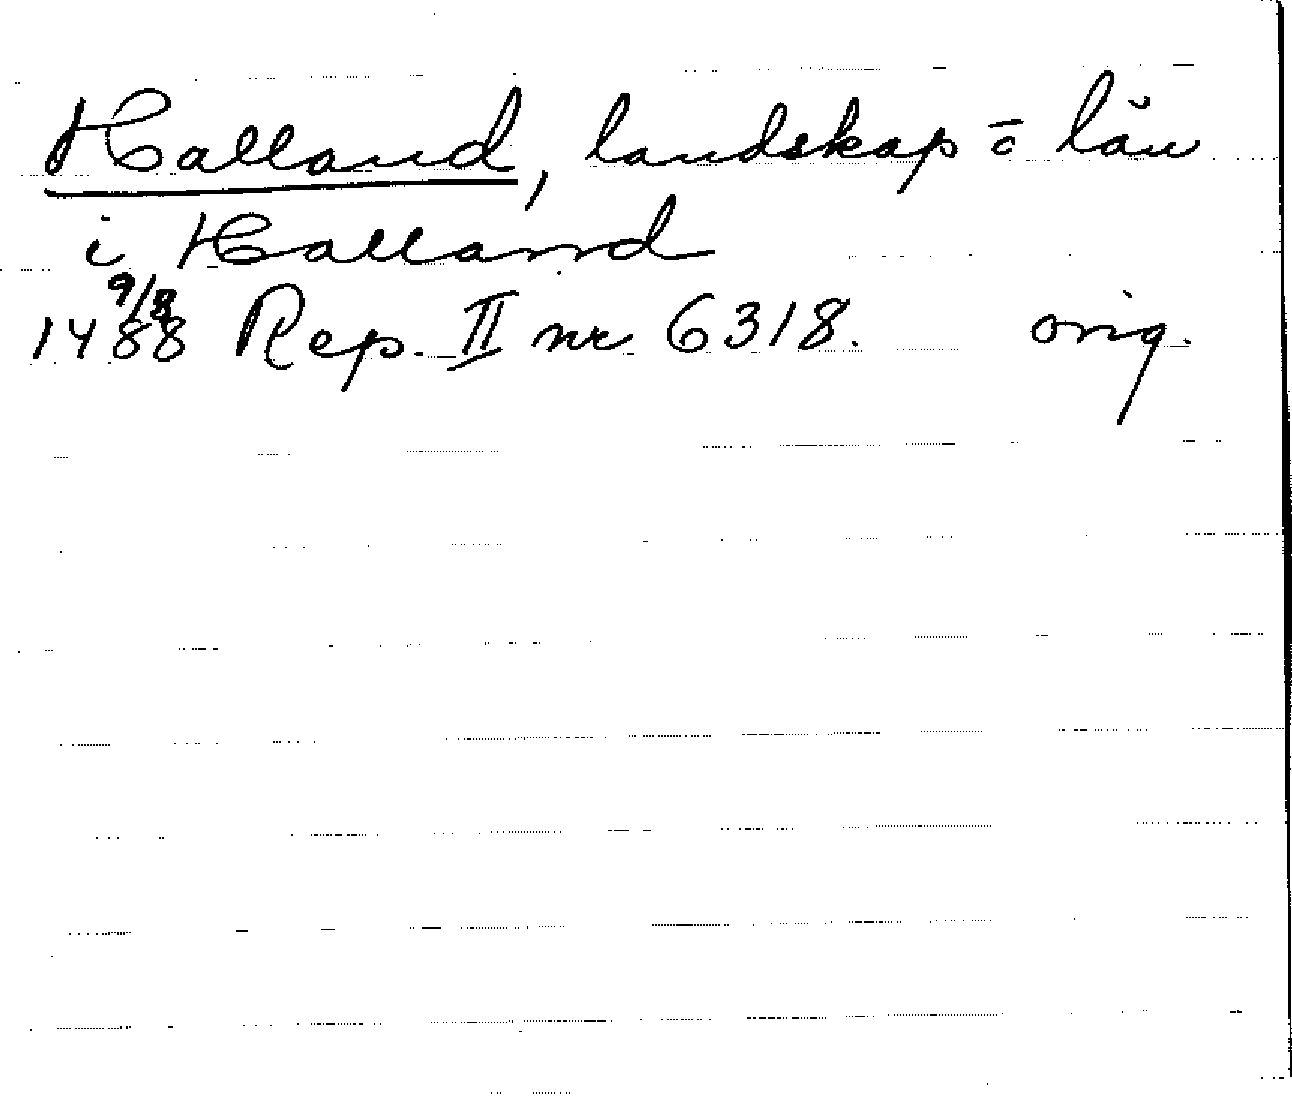 Halland, landskap = län
i Halland
1488 9/8 Rep. II nr 6318. orig.